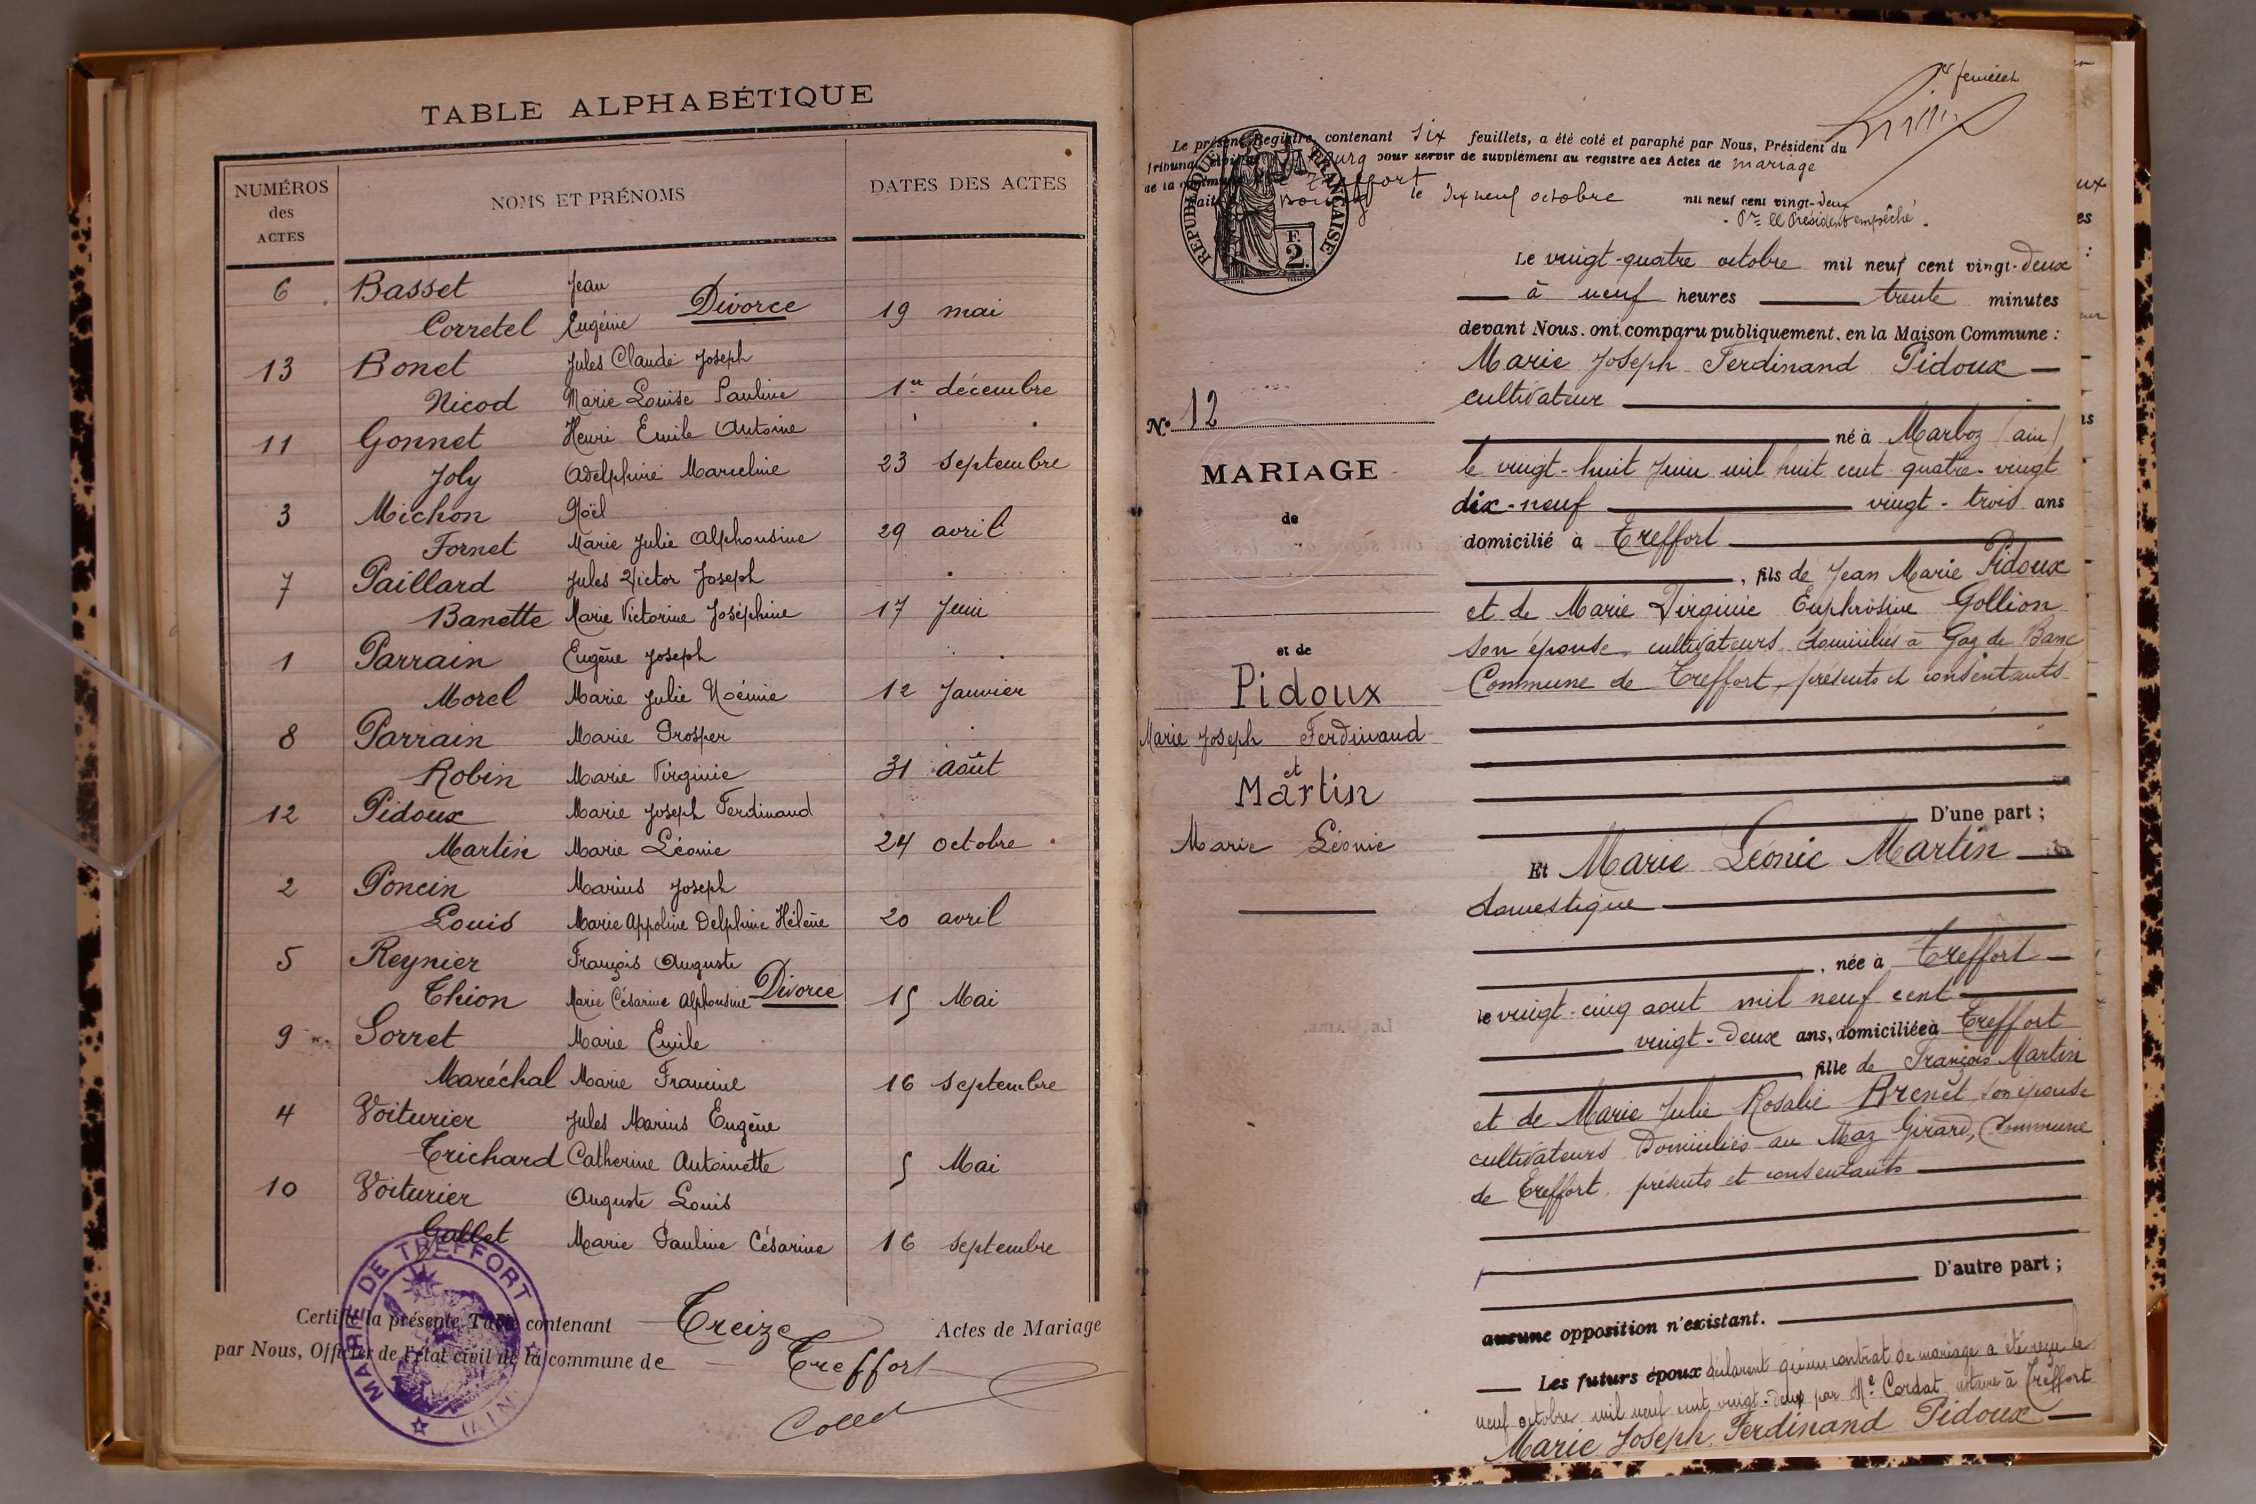 TABLE ALPHABÉTIQUE
NUMÉROS des ACTES
NOMS ET PRÉNOMS
DATES DES ACTES
6 Basset Jean
Corretel Eugénie Divorce 19 mai
13 Bonet Jules Claude Joseph
Nicod Marie Louise Pauline 1er décembre
11 Gonnet Henri Emile Antoine
Joly Adelphine Marceline 23 septembre
3 Michon Noël
Fornet Marie Julie Alphonsine 29 avril
7 Paillard Jules Victor Joseph
Banette Marie Victorine Joséphine 17 Juin
1 Parrain Eugène Joseph
Morel Marie Julie Noémie 12 Janvier
8 Parrain Marie Prosper
Robin Marie Virginie 31 août
12 Pidoux Marie Joseph Ferdinand
Martin Marie Léonie 24 octobre
2 Poncin Marius Joseph
Louis Marie Appoline Delphine Hélène 20 avril
5 Reynier François Auguste
Thion Marie Césarine Alphonsine Divorce 15 Mai
9 Sorret Marie Emile
Maréchal Marie Francine 16 septembre
4 Voiturier Jules Marius Eugène
Trichard Catherine Antoinette 5 Mai
10 Voiturier Auguste Louis
Gallet Marie Pauline Césarine 16 septembre
Certifié la présente Table contenant Treize Actes de Mariage
par Nous, Officier de l'état civil de la commune de Treffort
MAIRIE DE TREFFORT (AIN)
feuillet
Le présent Registre, contenant six feuillets, a été coté et paraphé par Nous, Président du
Tribunal civil de Bourg pour servir de supplément au registre des Actes de mariage
de la commune de Treffort
Fait à Bourg le dix neuf octobre mil neuf cent vingt-deux
Pr le Président empêché.
RÉPUBLIQUE FRANÇAISE
F.
2.
Le vingt-quatre octobre mil neuf cent vingt-deux
à neuf heures trente minutes
devant Nous, ont comparu publiquement, en la Maison Commune :
Marie Joseph Ferdinand Pidoux
cultivateur
né à Marboz (ain)
le vingt-huit Juin mil huit cent quatre-vingt
dix-neuf vingt-trois ans
domicilié à Treffort
, fils de Jean Marie Pidoux
et de Marie Virginie Euphrosine Gollion
son épouse, cultivateurs domiciliés à Goz de Banc
Commune de Treffort, présents et consentants
D'une part ;
N° 12
MARIAGE
de
et de
Pidoux
Marie Joseph Ferdinand
et
Martin
Marie Léonie
Et Marie Léonie Martin
domestique
, née à Treffort
le vingt-cinq aout mil neuf cent
vingt-deux ans, domiciliée à Treffort
fille de François Martin
et de Marie Julie Rosalie Brenet son épouse
cultivateurs Domiciliés au Maz Girard, Commune
de Treffort, présents et consentants
D'autre part ;
aucune opposition n'existant.
Les futurs époux déclarent qu'un contrat de mariage a été reçu le
neuf octobre mil neuf cent vingt-deux par Me Cordat notaire à Treffort
Marie Joseph Ferdinand Pidoux